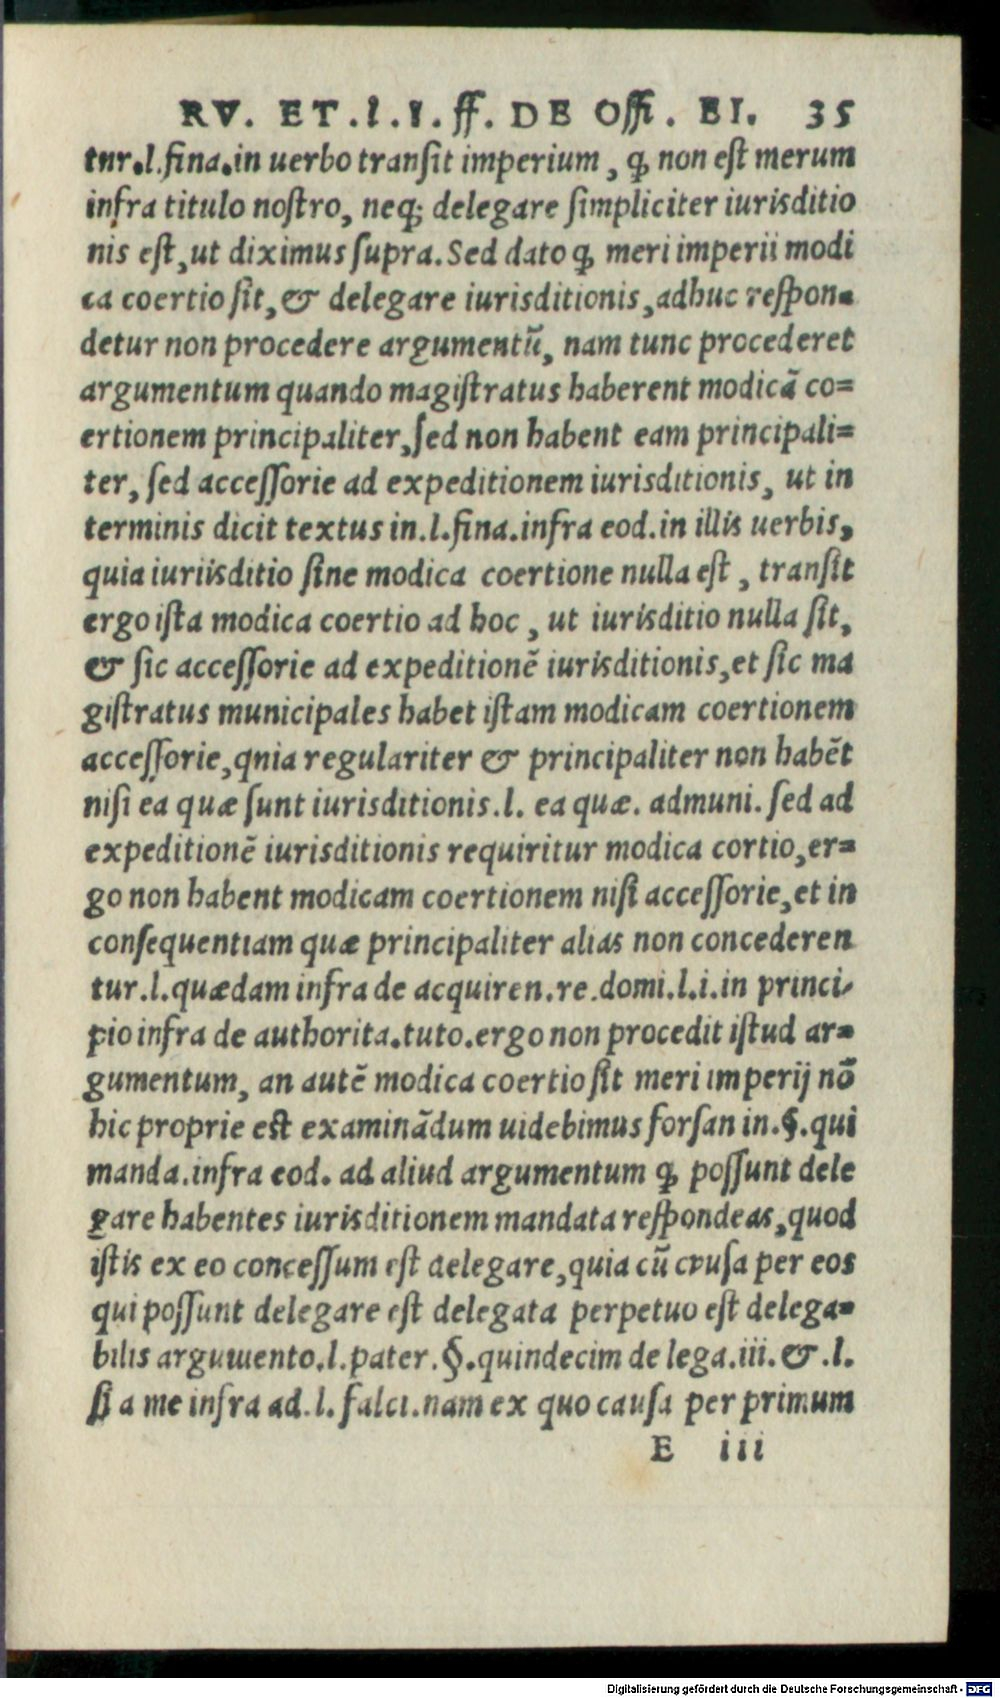 RV. ET.l.i.ff. DE Offi. EI. 35
tnr.l.fina.in uerbo transit imperium, ꝙ non est merum
infra titulo nostro, neq; delegare simpliciter iurisditio
nis est, ut diximus supra. Sed dato ꝙ meri imperii modi
ca coertio sit, & delegare iurisditionis, adhuc respon-
detur non procedere argumentũ, nam tunc procederet
argumentum quando magistratus haberent modicã co=
ertionem principaliter, sed non habent eam principali=
ter, sed accessorie ad expeditionem iurisditionis, ut in
terminis dicit textus in.l.fina.infra eod.in illis uerbis,
quia iuriisditio sine modica coertione nulla est, transit
ergo ista modica coertio ad hoc, ut iurisditio nulla sit,
& sic accessorie ad expeditionẽ iurisditionis, et sic ma
gistratus municipales habet istam modicam coertionem
accessorie, qnia regulariter & principaliter non habẽt
nisi ea quæ sunt iurisditionis.l. ea quæ. admuni. sed ad
expeditionẽ iurisditionis requiritur modica cortio, er=
go non habent modicam coertionem nisi accessorie, et in
consequentiam quæ principaliter alias non concederen
tur.l.quædam infra de acquiren.re.domi.l.i.in princi-
pio infra de authorita.tuto.ergo non procedit istud ar=
gumentum, an autẽ modica coertio sit meri imperij nõ
hic proprie est examinãdum uidebimus forsan in.§.qui
manda.infra eod. ad aliud argumentum ꝙ possunt dele
gare habentes iurisditionem mandata respondeas, quod
istis ex eo concessum est delegare, quia cũ cɐusa per eos
qui possunt delegare est delegata perpetuo est delega=
bilis argumento.l.pater.§.quindecim de lega.iii.&.l.
si a me infra ad.l.falci.nam ex quo causa per primum
E iii
Digitalisierung gefördert durch die Deutsche Forschungsgemeinschaft - DFG